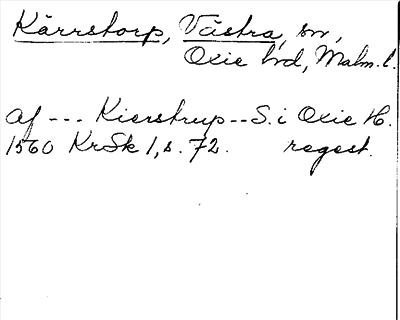 Kärrstorp, Västra, sn,
Oxie hd, Malm. l.
af --- Kierstrup -- S. i Oxie H.
1560 KrSk 1, s. 72. regest.